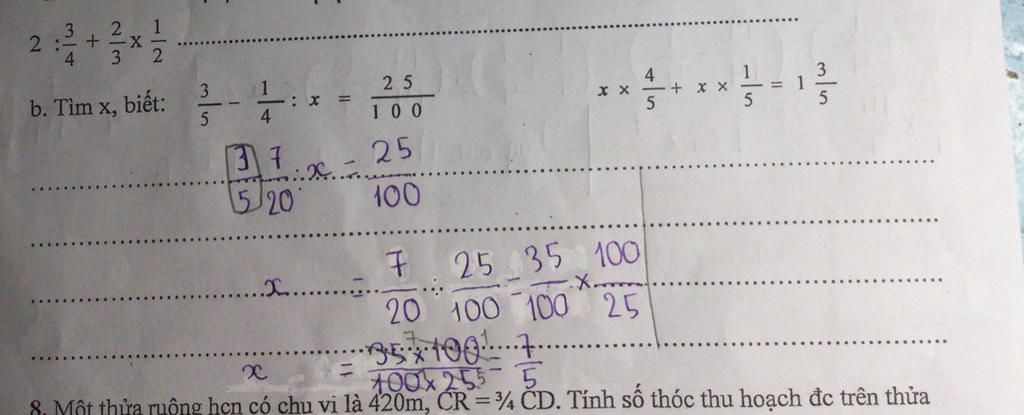 2 : 3/4 + 2/3 x 1/2
b. Tìm x, biết: 3/5 - 1/4 : x = 25/100 x × 4/5 + x × 1/5 = 1 3/5
3/5 7/20 : x = 25/100
x = 7/20 : 25/100 = 35/100 × 100/25
x = 35 7 × 100 1 / 100 × 25 5 = 7/5
8. Một thửa ruộng hcn có chu vi là 420m, CR = ¾ CD. Tính số thóc thu hoạch đc trên thửa